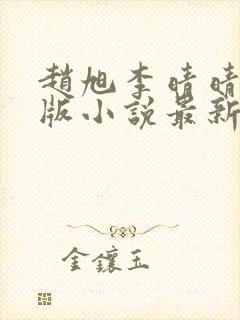 趙旭李晴晴
版小說最新
金鑲玉